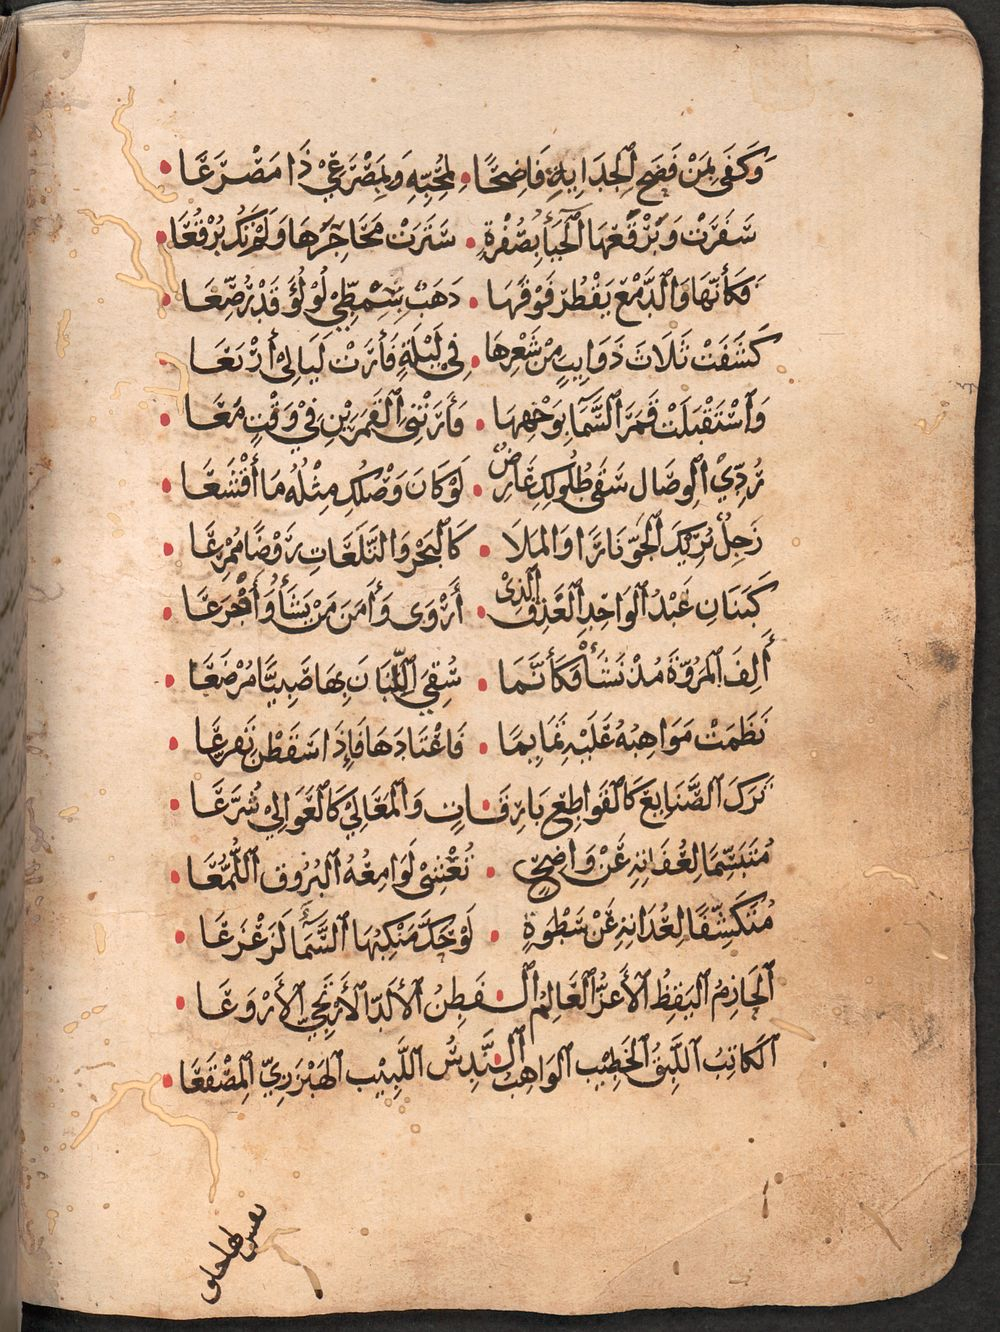 وَكَفَى بِمَنْ فَضَحَ الجَدَايةَ فَاضِحًا • لِمُحِبِّهِ وَبِمَصْرَعِيْ ذَا مَصْرَعَا •
سَفَرَتْ وَبَرْقَعَهَا الْحَيَأُ بِصُفْرَةٍ • سَتَرَتْ مَحَاجِرَهَا وَلَمْ تَكُ بُرْقُعَا •
فَكَأَنّهَا وَالدَّمْعُ يَقْطُرُ فَوْقَهَا • ذَهَبٌ بِسِمْطَيْ لُوْلُؤٍ قَدْ رُصِّعَا •
كَشَفَتْ ثَلَاثَ ذَوَايبٍ مِنْ شَعْرِهَا • فِي لَيْلَةٍ فَأَرَتْ لَيَالِيْ أَرْبَعَا •
وَاسْتَقْبَلَتْ قَمَرَ السَّمَآ بِوَجْهِهَا • فَأَرَتْنِيَ القَمَرَيْنِ فِيْ وَقْتٍ مَعَا •
رُدِّيْ الوِصَال سَقَى طُلُولَكِ عَارِضٌ • لَوْ كَانَ وَصْلُكِ مِثْلُهُ مَا أَقْشَعَا •
زَجِلٌ يُرِيْكَ الجَوَّ نَارًا وَالمَلَا • كَالبَحْرِ وَالتَّلَعَاتِ رَوْضًا مُمْرِعَا •
كَبَنَانِ عَبْدُ الوَاحِدِ الغَدِقِ الَّذِيْ • أَرْوَى وَأَمَنَ مَنْ يَشَأُ وَأَفْزَعَا •
أَلِفَ المُرُوَّةَ مُذْ نَشَأْ فَكَأَنَّمَا • سُقِيَ اللِّبَانَ بِهَا صَبِيًّا مُرْضَعَا •
نَظَمَتْ مَوَاهِبُهُ عَلَيْهِ تَمَايِمًا • فَاعْتَادَهَا فَإِذَا سَقَطْنَ تَفَرعَّا •
تَرَكَ الصَّنَايِعَ كَالقَوَاطِعِ بَارِقَـاتٍ وَالْمَعَالِيْ كَالعَوَالِيْ شُرَّعَا •
مُتَبَسِّمًا لِعُفَاتِهِ عَنْ وَاضِحٍ • تُعْشِيْ لَوَامِعُهُ البُرُوقَ اللُّمَّعَا •
مُتَكَشِّفًا لِعُدَاتِهِ عَنْ سَطْوَةٍ • لَوْ حَكَّ مَنْكِبُهَا السَّمَآ لَزَعْزَعَا •
الحَازِمُ اليَقِظُ الْأَعَزُّ العَالِمُ الـفَطِنُ الأَلَدّ الأَرْيَحِيّ الأَرْوَعَـا •
الكَاتِبُ اللَّبِقُ الخَطِيْب الوَاهِبُ النَّدِسُ اللَّبِيْب الهَبْرَزِيّ المِصْقَعَا •